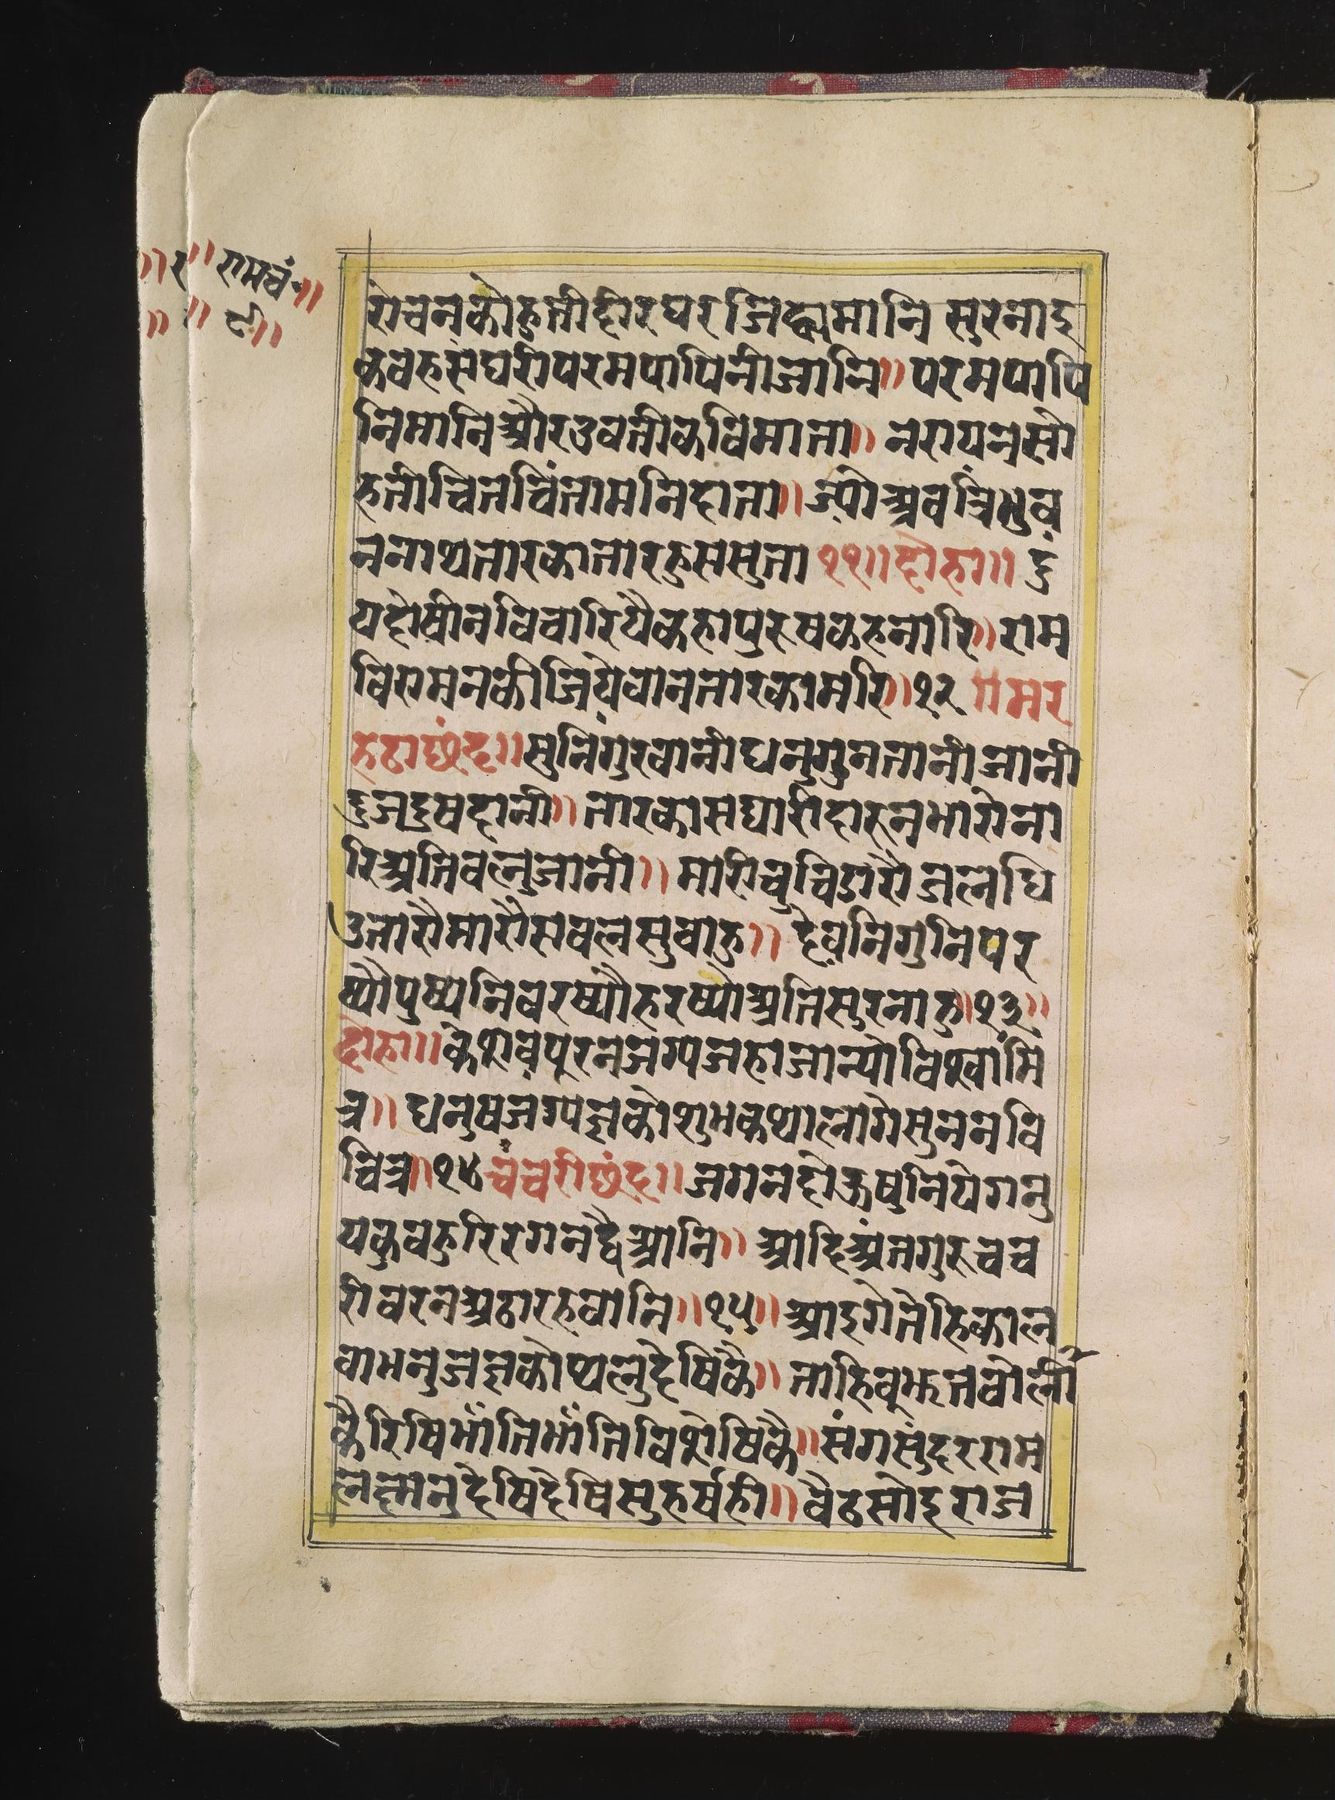 ॥ रामचं॰॥
॥ ९ी॥
रोचनकोहुतीदीरघरजिह्वामानि सुरनाइ
कवहसंघरीपरमपापिनीजानि॥ परमपापि
निमानिऔरउवतीकविमाता॥ नरायनसो
हतीचितचिंतामनिदाता॥ ज्योअवत्रिभुव
ननाथतारकातारहुससुता ११॥दोहा॥ द्वि
यदोषीनविचारियैकहापुरुषकहनारि॥ राम
विरामनकीजियेवानतारकामारि॥१२ ॥मर
हठाछंद॥सुनिगुरवानीधनुगुनतानीजानी
द्विजदुषदानी॥ तारकासघारीदारुनभारीना
रिअतिवलजानी॥ मारीचुविडारौजलधि
उतारौमारौसवलसुवाहु॥ देवनिगुनिपर
ष्यौपुष्पनिवरष्यौहरष्यौअतिसुरनाहु॥१३॥
दोहा॥केशवपूरनजग्यजहाजान्यौविश्वामि
त्र॥ धनुषजग्यजूकोशुभकथालागेसुननवि
चित्र॥१४ चंचरीछंद॥ जगनदोऊषुनियेगनु
यकुवहुरिरगनद्वैआनि॥ आदिअंतगुरुचच
रीवरनअठारहवानि॥१५॥ आइगेतेहिकाल
वाभनुजज्ञकोथलुदेषिकै॥ ताहिवूझतवोली
कैरिषिभाँतिभाँतिविशेषिकै॥ संगसुंदरराम
लछमनुदेषिदेषिसुहर्षही॥ वैठसोइराज